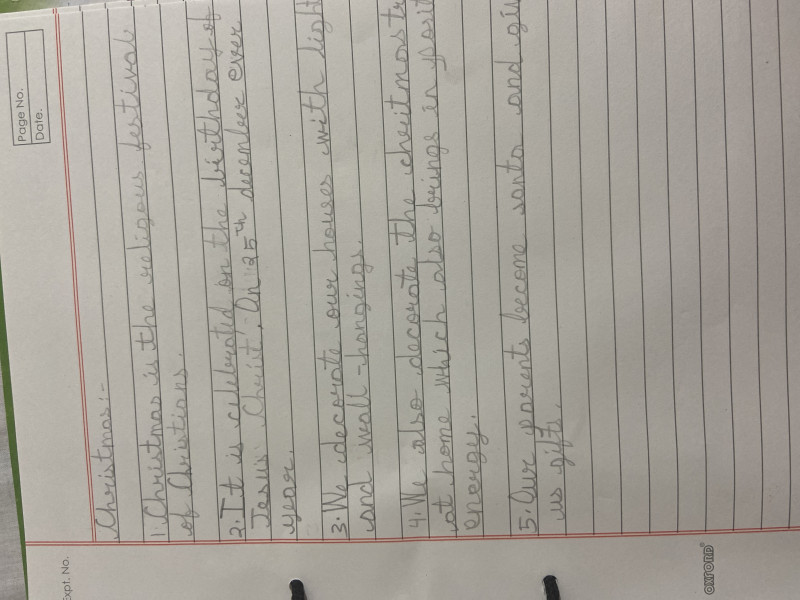 Page No.
Date.
Expt. No.
Christmas:-
1. Christmas is the religous festival
of Christians.
2. It is celebrated on the birthday of
Jesus Christ. On 25th december ever
year.
3. We decorate our houses with light
and wall-hangings.
4. We also decorate the chritmas tr
at home which also brings in posit
energy.
5. Our parents become santa and giv
us gifts.
OXFORD